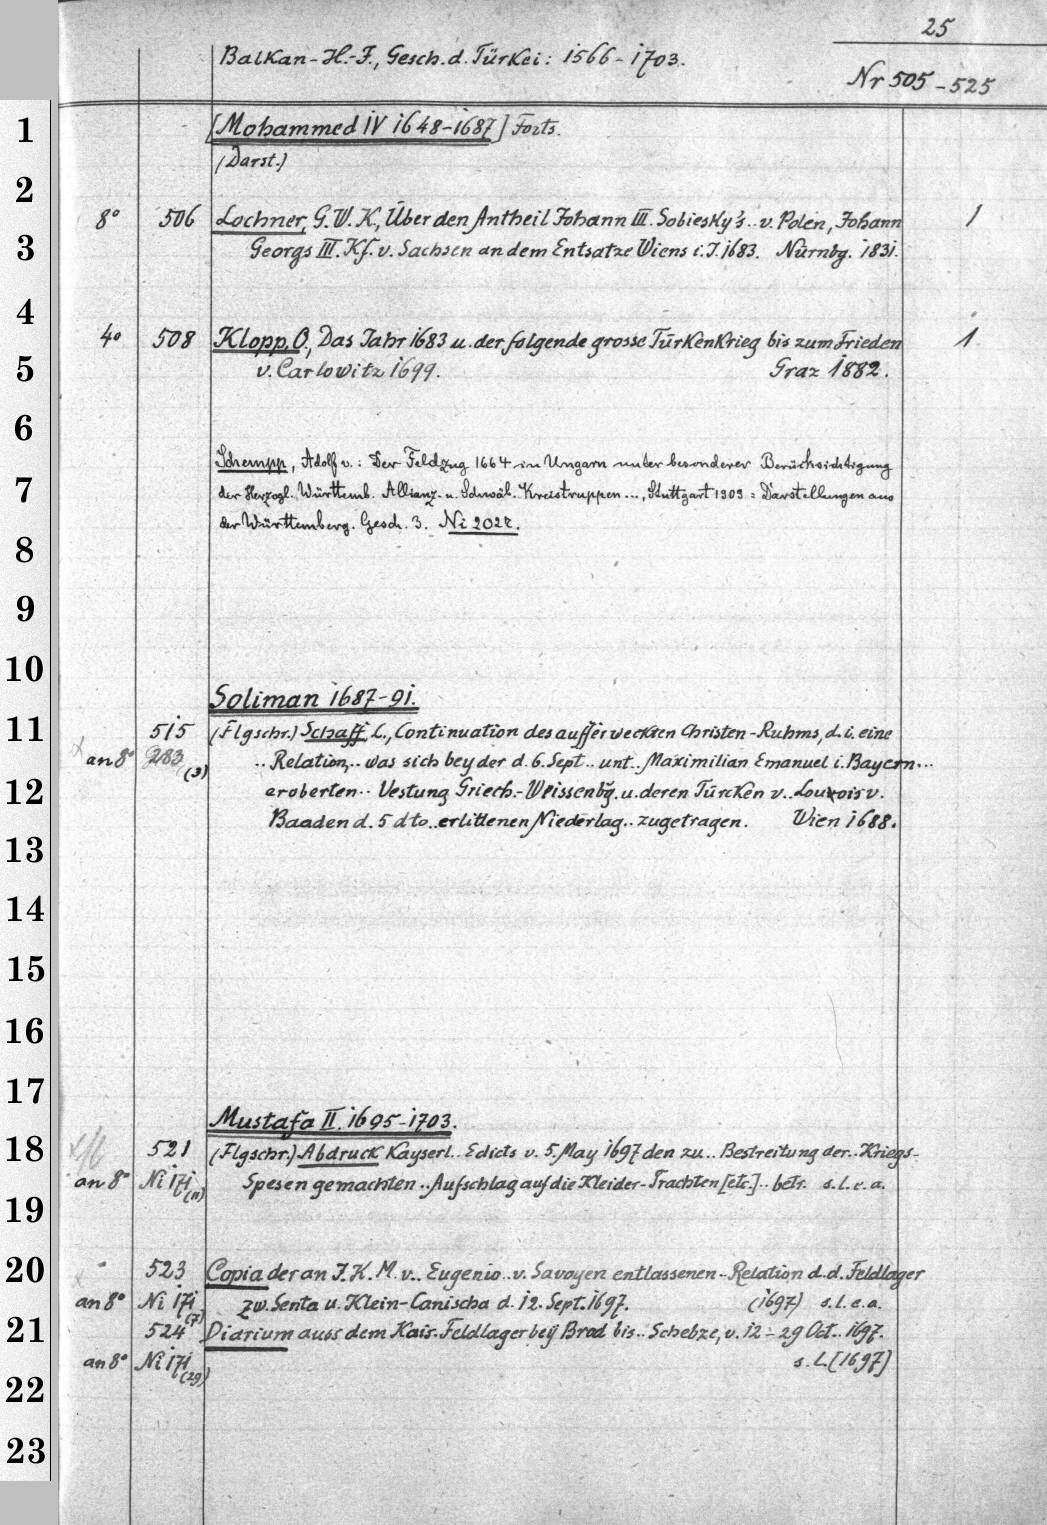 25
Balkan-H.-F., Gesch. d. Türkei: 1566-1703.
Nr 505-525
1
[Mohammed IV 1648-1687] Forts.
(Darst.)
2
8° 506 Lochner, G. W. K., Über den Antheil Johann III. Sobiesky's .. v. Polen, Johann 1
3
Georgs III. Kf. v. Sachsen an dem Entsatze Wiens i. J. 1683. Nürnbg. 1831.
4
4° 508 Klopp, O., Das Jahr 1683 u. der folgende grosse Türkenkrieg bis zum Frieden 1
5
v. Carlowitz 1699. Graz 1882.
6
Schempp, Adolf v.: Der Feldzug 1664 in Ungarn unter besonderer Berücksichtigung
7
der Herzogl. Württemb. Allianz- u. Schwäb. Kreistruppen ..., Stuttgart 1909 = Darstellungen aus
der Württemberg. Gesch. 3. Ni 202r.
8
9
10
Soliman 1687-91.
11
515 (Flgschr.) Schaff, L., Continuation des auffërweckten Christen-Ruhms, d. i. eine
an 8° 283 (3) .. Relation,.. was sich bey der d. 6. Sept .. unt .. Maximilian Emanuel i. Bayern ...
12
eroberten .. Vestung Griech.-Weissenbg. u. deren Türcken v. .. Louxois v.
13
Baaden d. 5 dto .. erlittenen Niederlag .. zugetragen. Wien 1688.
14
15
16
17
Mustafa II. 1695-1703.
18
521 (Flgschr.) Abdruck Kayserl. .. Edicts v. 5. May 1697 den zu .. Bestreitung der .. Kriegs-
an 8° Ni 171 (11) Spesen gemachten .. Aufschlag auf die Kleider-Trachten [etc.] .. betr. s. l. e. a.
19
20
523 Copia der an J. K. M. v. .. Eugenio .. v. Savoyen entlassenen .. Relation d. d. Feldlager
an 8° Ni 171 (7) zw. Senta u. Klein-Canischa d. 12. Sept. 1697. (1697) s. l. e. a.
21
524 Diarium auss dem Kais. Feldlager beÿ Brod bis .. Schebze, v. 12-29 Oct .. 1697.
an 8° Ni 171 (29) s. l. [1697]
22
23